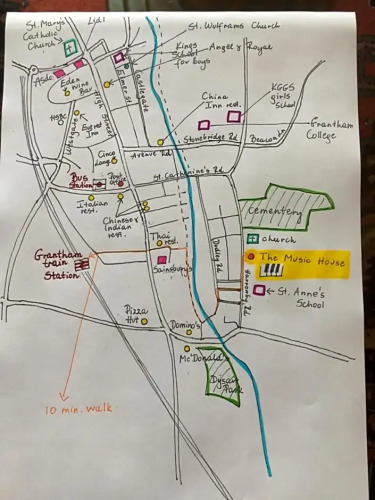 St. Mary's
Catholic
Church
Lidl
St. Wulfram's Church
Kings
School
for boys
Angel & Royal
Aldi
Eden
Wine
Bar
High Street
Castlegate
China
Inn rest.
KGGS
girls
School
Westgate
Everest
Inn
Stonebridge Rd
Beacon Ln
Grantham
College
Cinco
Lounge
Avenue Rd
BUS
Station
Post
office
St. Catherine's Rd
Italian
rest.
Chinese &
Indian
rest.
Cementery
Thai
rest.
Dudley Rd
church
Grantham
train
Station
Sainsbury's
The Music House
Harrowby Rd
St. Anne's
School
Pizza
Hut
Domino's
McDonald's
Dysart
Park
10 min. walk